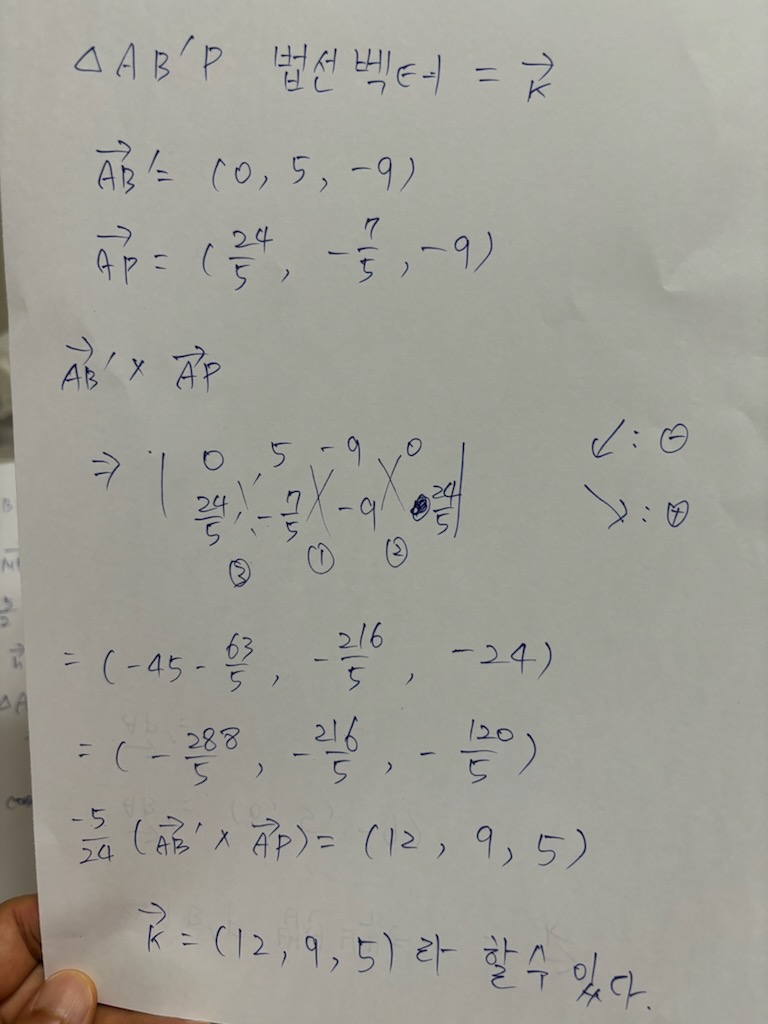 △AB'P 법선벡터 = K⃗
AB'⃗ = (0, 5, -9)
AP⃗ = (24/5, -7/5, -9)
AB'⃗ × AP⃗
⇒ | 0 5 -9 0 | ↙: ⊖
24/5 -7/5 -9 24/5 ↘: ⊕
③ ① ②
= (-45 - 63/5, -216/5, -24)
= (-288/5, -216/5, -120/5)
-5/24 (AB'⃗ × AP⃗) = (12, 9, 5)
K⃗ = (12, 9, 5) 라 할 수 있다.